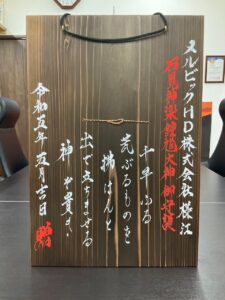 メルビックHD株式会社様江
石見神楽館道大神御神授
千早ふる
荒ぶるものを
拂はんと
出で立ちませる
神ぞ貴き
令和五年五月吉日
贈